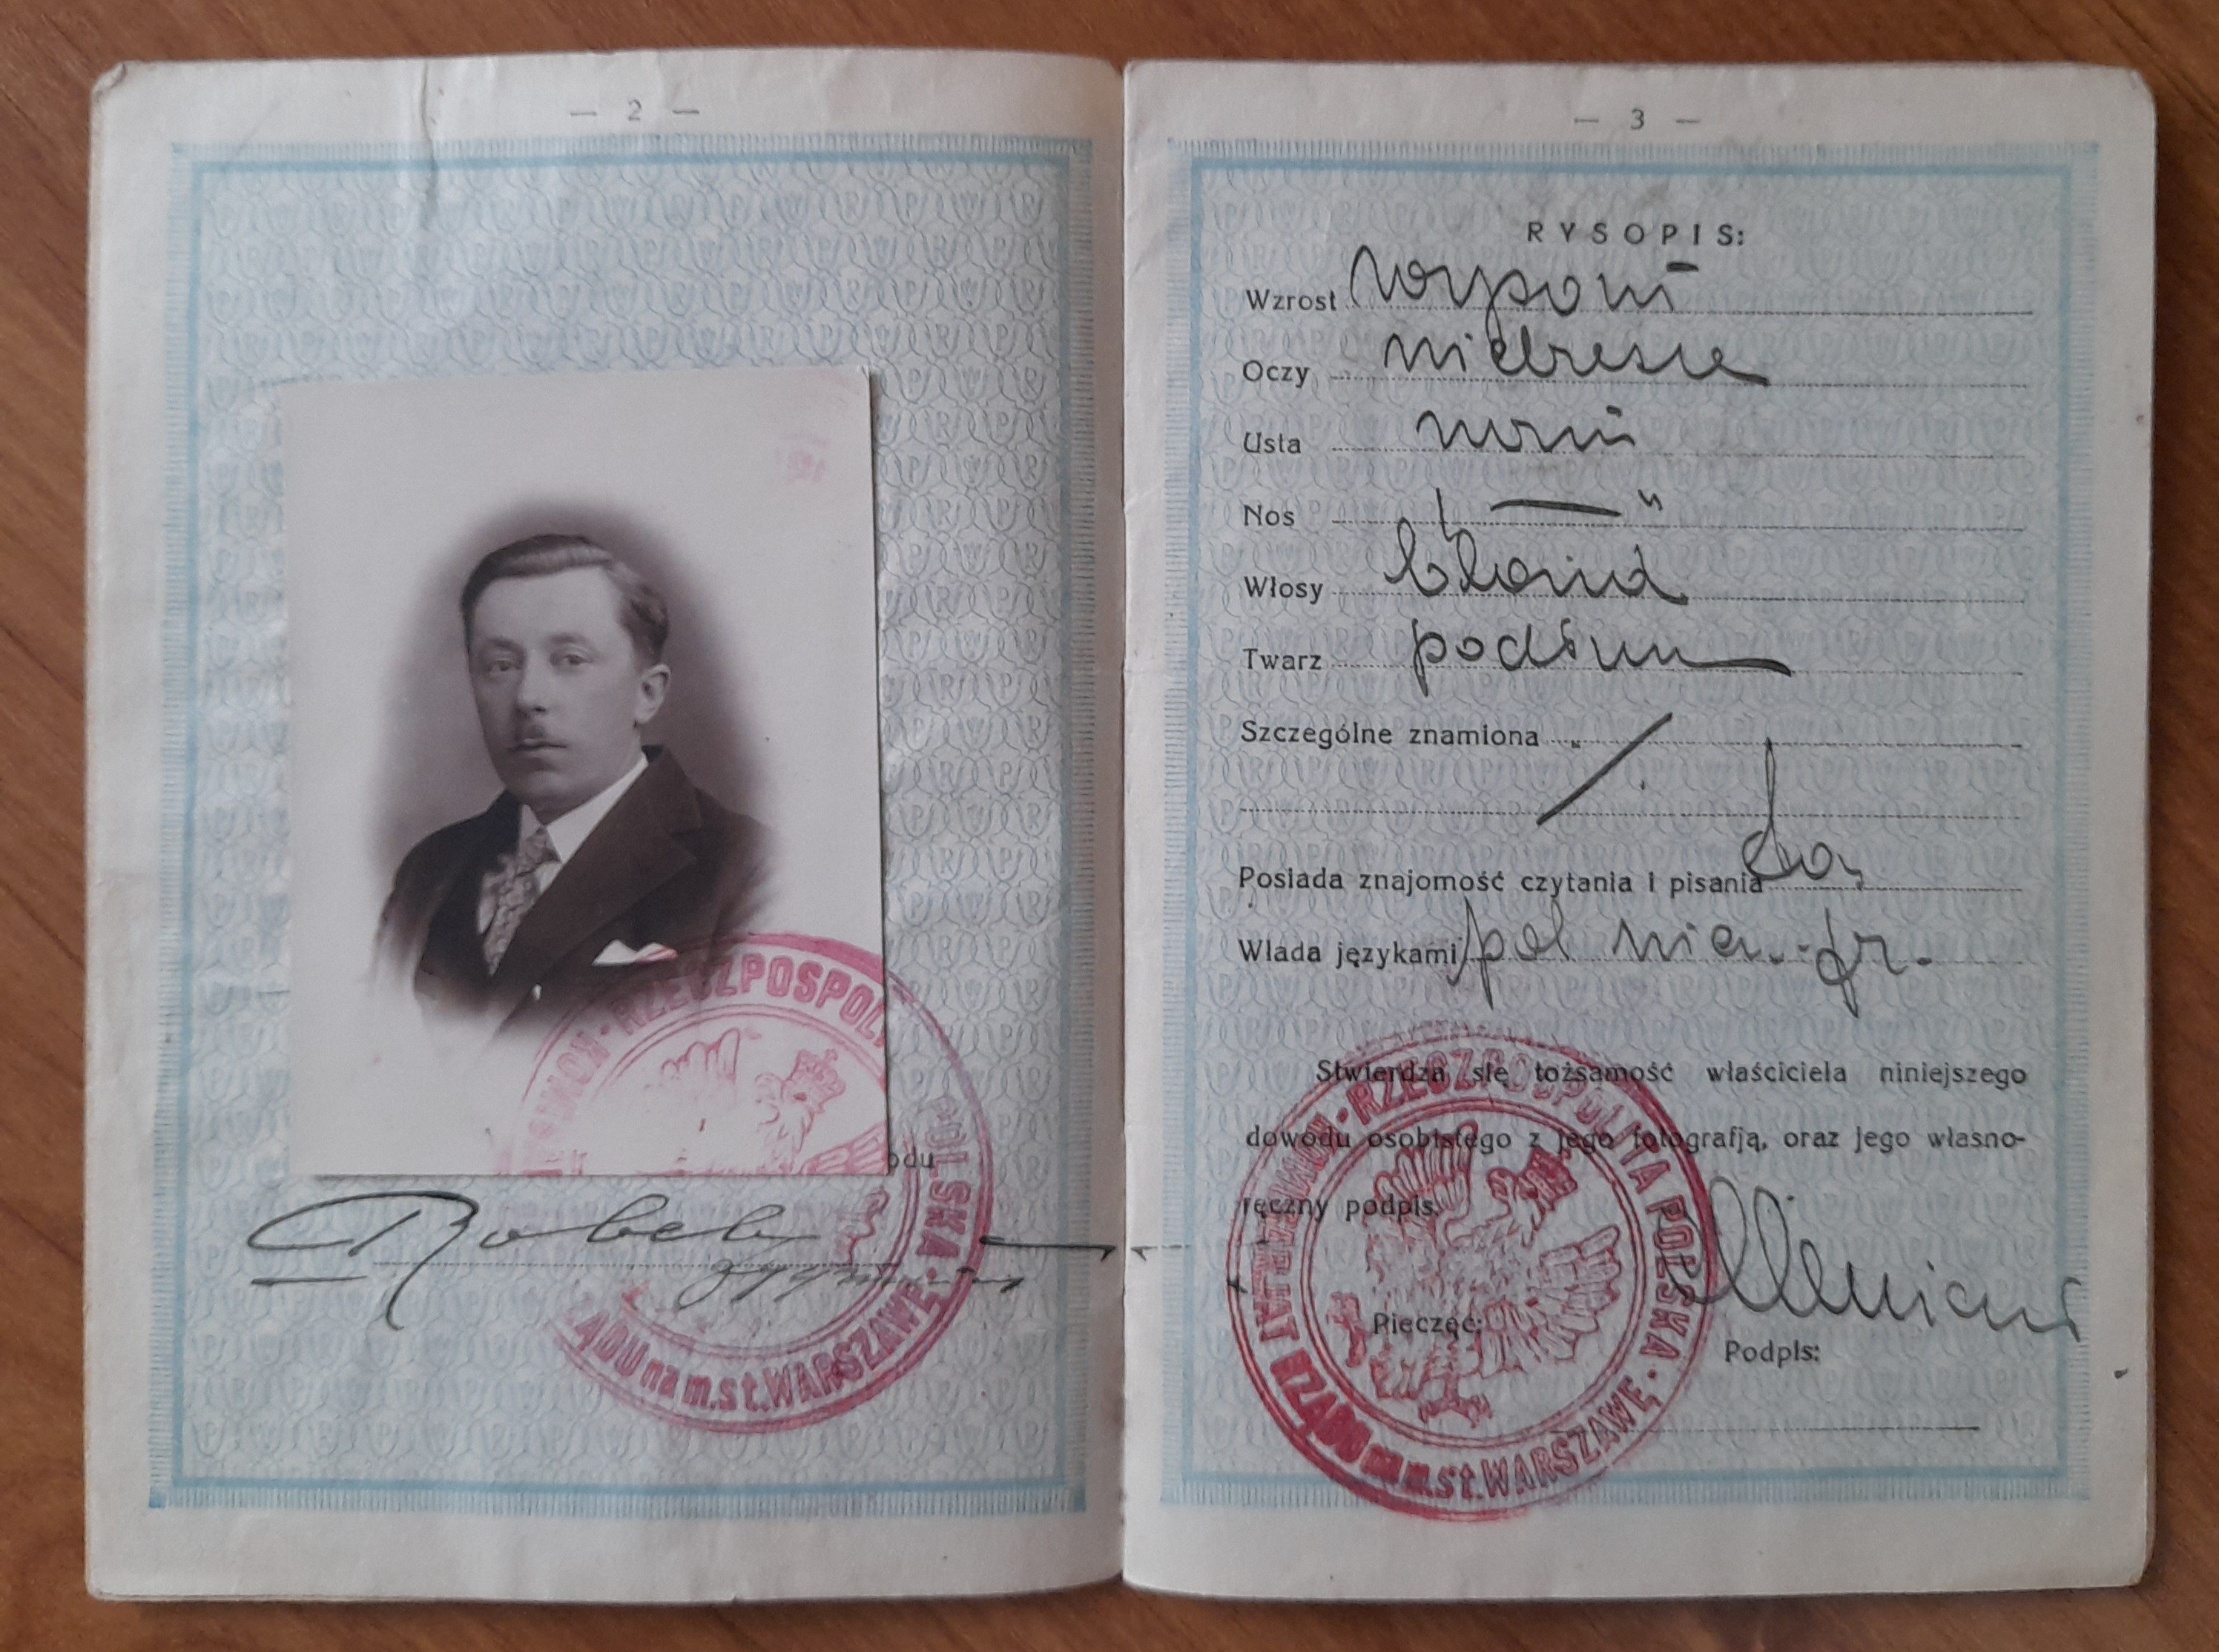 — 2 —
odu
RZECZPOSPOLITA POLSKA
RZĄDU na m.st. WARSZAWĘ
— 3 —
RYSOPIS:
Wzrost
Oczy niebieskie
Usta norm
Nos — " —
Włosy blond
Twarz podłużn
Szczególne znamiona
Posiada znajomość czytania i pisania
Włada językami pol niem. fr.
Stwierdza się tożsamość właściciela niniejszego
dowodu osobistego z jego fotografją, oraz jego własno-
ręczny podpis.
Pieczęć:
Podpis:
RZECZPOSPOLITA POLSKA
KOMISARJAT RZĄDU na m.st. WARSZAWĘ